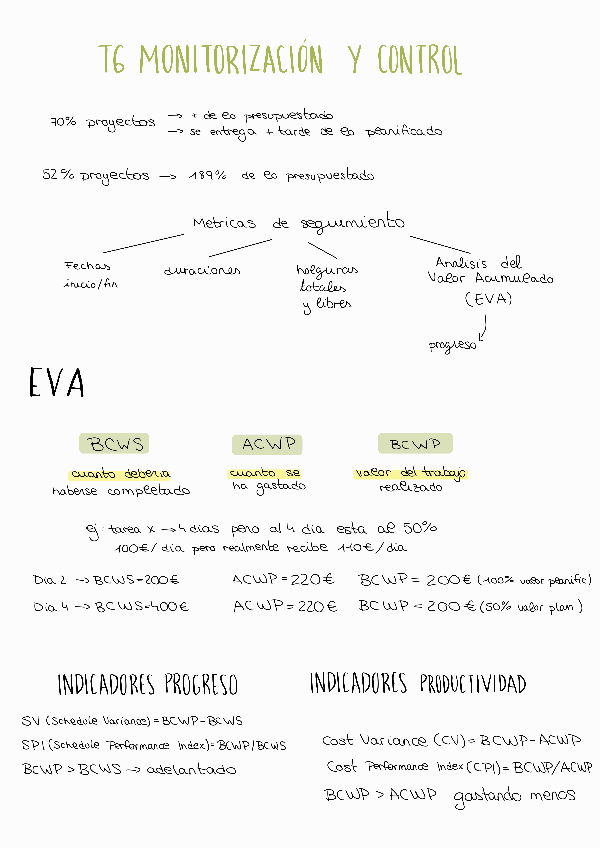 T6 MONITORIZACIÓN Y CONTROL
70% proyectos → + de lo presupuestado
→ se entrega + tarde de lo planificado
52% proyectos → 189% de lo presupuestado
Metricas de seguimiento
Fechas inicio/fin
duraciones
holguras totales y libres
Analisis del Valor Acumulado (EVA)
progreso
EVA
BCWS ACWP BCWP
cuanto deberia cuanto se valor del trabajo
haberse completado ha gastado realizado
ej: tarea x → 4 dias pero al 4 dia esta al 50%
100€/dia pero realmente recibe 110€/dia
Dia 2 → BCWS=200€ ACWP=220€ BCWP = 200€ (100% valor planific)
Dia 4 → BCWS=400€ ACWP=220€ BCWP = 200€ (50% valor plan)
INDICADORES PROGRESO
SV (Schedule Variance) = BCWP-BCWS
SPI (Schedule Performance Index) = BCWP/BCWS
BCWP > BCWS → adelantado
INDICADORES PRODUCTIVIDAD
Cost Variance (CV) = BCWP-ACWP
Cost Performance Index (CPI) = BCWP/ACWP
BCWP > ACWP gastando menos